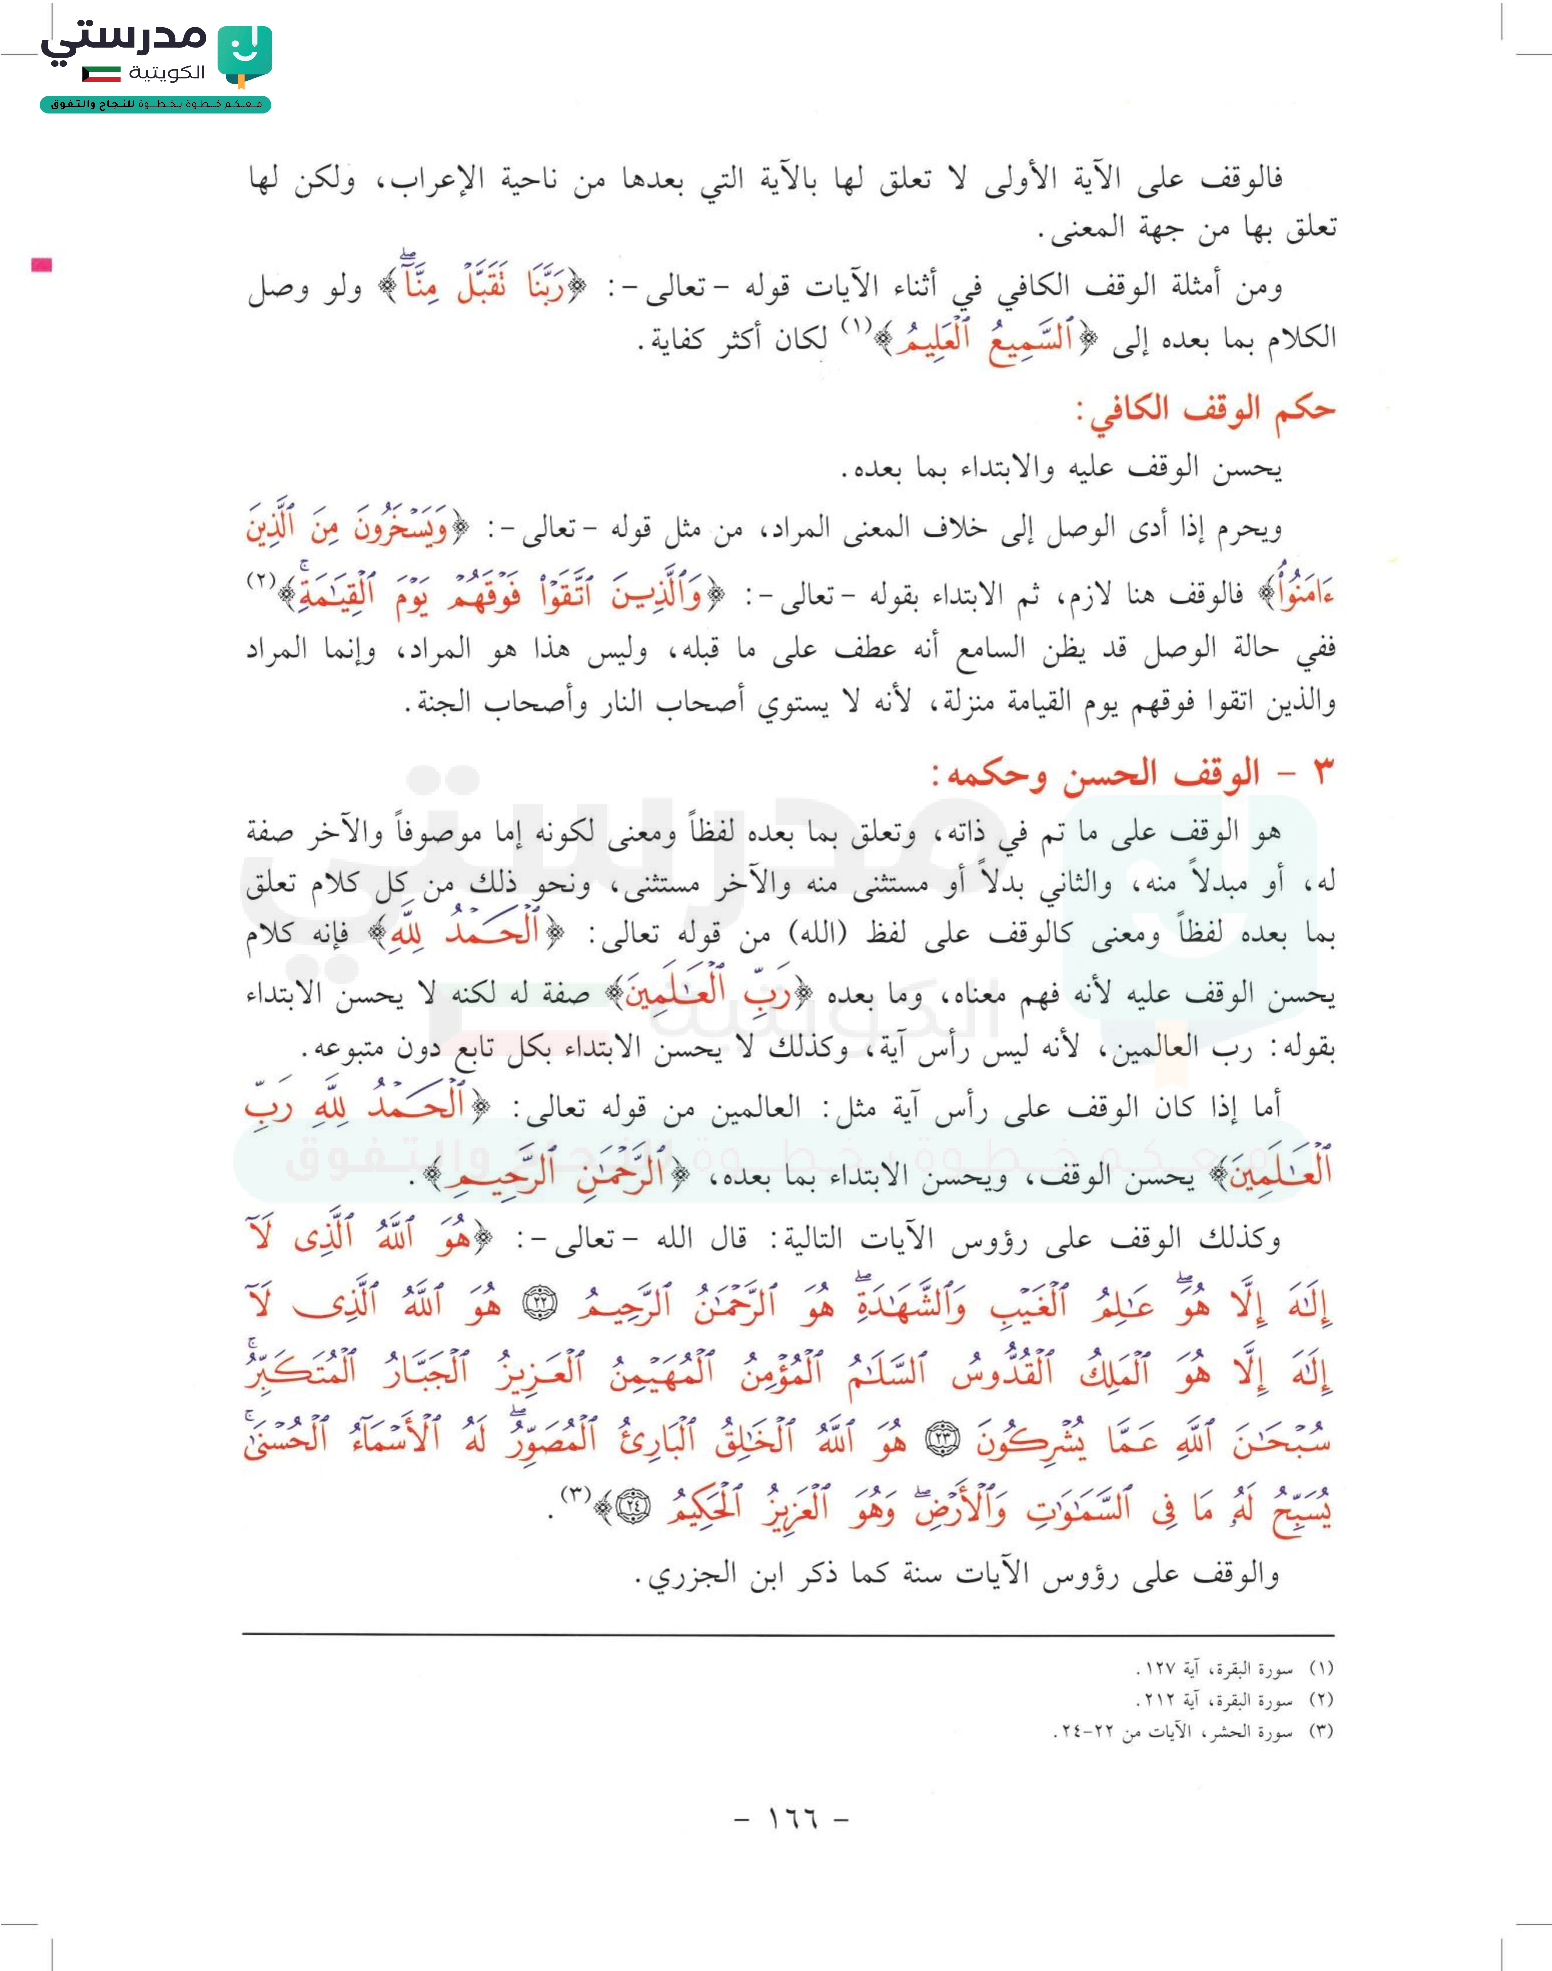 مدرستي
الكويتية
معكم خطوة بخطوة للنجاح والتفوق
فالوقف على الآية الأولى لا تعلق لها بالآية التي بعدها من ناحية الإعراب، ولكن لها
تعلق بها من جهة المعنى.
ومن أمثلة الوقف الكافي في أثناء الآيات قوله -تعالى-: ﴿رَبَّنَا تَقَبَّلْ مِنَّآۖ﴾ ولو وصل
الكلام بما بعده إلى ﴿ٱلسَّمِيعُ ٱلْعَلِيمُ﴾(١) لكان أكثر كفاية.
حكم الوقف الكافي:
يحسن الوقف عليه والابتداء بما بعده.
ويحرم إذا أدى الوصل إلى خلاف المعنى المراد، من مثل قوله -تعالى-: ﴿وَيَسْخَرُونَ مِنَ ٱلَّذِينَ
ءَامَنُواْۘ﴾ فالوقف هنا لازم، ثم الابتداء بقوله -تعالى-: ﴿وَٱلَّذِينَ ٱتَّقَوْاْ فَوْقَهُمْ يَوْمَ ٱلْقِيَٰمَةِۚ﴾(٢)
ففي حالة الوصل قد يظن السامع أنه عطف على ما قبله، وليس هذا هو المراد، وإنما المراد
والذين اتقوا فوقهم يوم القيامة منزلة، لأنه لا يستوي أصحاب النار وأصحاب الجنة.
٣ - الوقف الحسن وحكمه:
هو الوقف على ما تم في ذاته، وتعلق بما بعده لفظاً ومعنى لكونه إما موصوفاً والآخر صفة
له، أو مبدلاً منه، والثاني بدلاً أو مستثنى منه والآخر مستثنى، ونحو ذلك من كل كلام تعلق
بما بعده لفظاً ومعنى كالوقف على لفظ (الله) من قوله تعالى: ﴿ٱلْحَمْدُ لِلَّهِ﴾ فإنه كلام
يحسن الوقف عليه لأنه فهم معناه، وما بعده ﴿رَبِّ ٱلْعَٰلَمِينَ﴾ صفة له لكنه لا يحسن الابتداء
بقوله: رب العالمين، لأنه ليس رأس آية، وكذلك لا يحسن الابتداء بكل تابع دون متبوعه.
أما إذا كان الوقف على رأس آية مثل: العالمين من قوله تعالى: ﴿ٱلْحَمْدُ لِلَّهِ رَبِّ
ٱلْعَٰلَمِينَ﴾ يحسن الوقف، ويحسن الابتداء بما بعده، ﴿ٱلرَّحْمَٰنِ ٱلرَّحِيمِ﴾.
وكذلك الوقف على رؤوس الآيات التالية: قال الله -تعالى-: ﴿هُوَ ٱللَّهُ ٱلَّذِى لَآ
إِلَٰهَ إِلَّا هُوَۖ عَٰلِمُ ٱلْغَيْبِ وَٱلشَّهَٰدَةِۖ هُوَ ٱلرَّحْمَٰنُ ٱلرَّحِيمُ ٢٢ هُوَ ٱللَّهُ ٱلَّذِى لَآ
إِلَٰهَ إِلَّا هُوَ ٱلْمَلِكُ ٱلْقُدُّوسُ ٱلسَّلَٰمُ ٱلْمُؤْمِنُ ٱلْمُهَيْمِنُ ٱلْعَزِيزُ ٱلْجَبَّارُ ٱلْمُتَكَبِّرُۚ
سُبْحَٰنَ ٱللَّهِ عَمَّا يُشْرِكُونَ ٢٣ هُوَ ٱللَّهُ ٱلْخَٰلِقُ ٱلْبَارِئُ ٱلْمُصَوِّرُۖ لَهُ ٱلْأَسْمَآءُ ٱلْحُسْنَىٰۚ
يُسَبِّحُ لَهُۥ مَا فِى ٱلسَّمَٰوَٰتِ وَٱلْأَرْضِۖ وَهُوَ ٱلْعَزِيزُ ٱلْحَكِيمُ ٢٤﴾(٣).
والوقف على رؤوس الآيات سنة كما ذكر ابن الجزري.
(١) سورة البقرة، آية ١٢٧.
(٢) سورة البقرة، آية ٢١٢.
(٣) سورة الحشر، الآيات من ٢٢-٢٤.
- ١٦٦ -